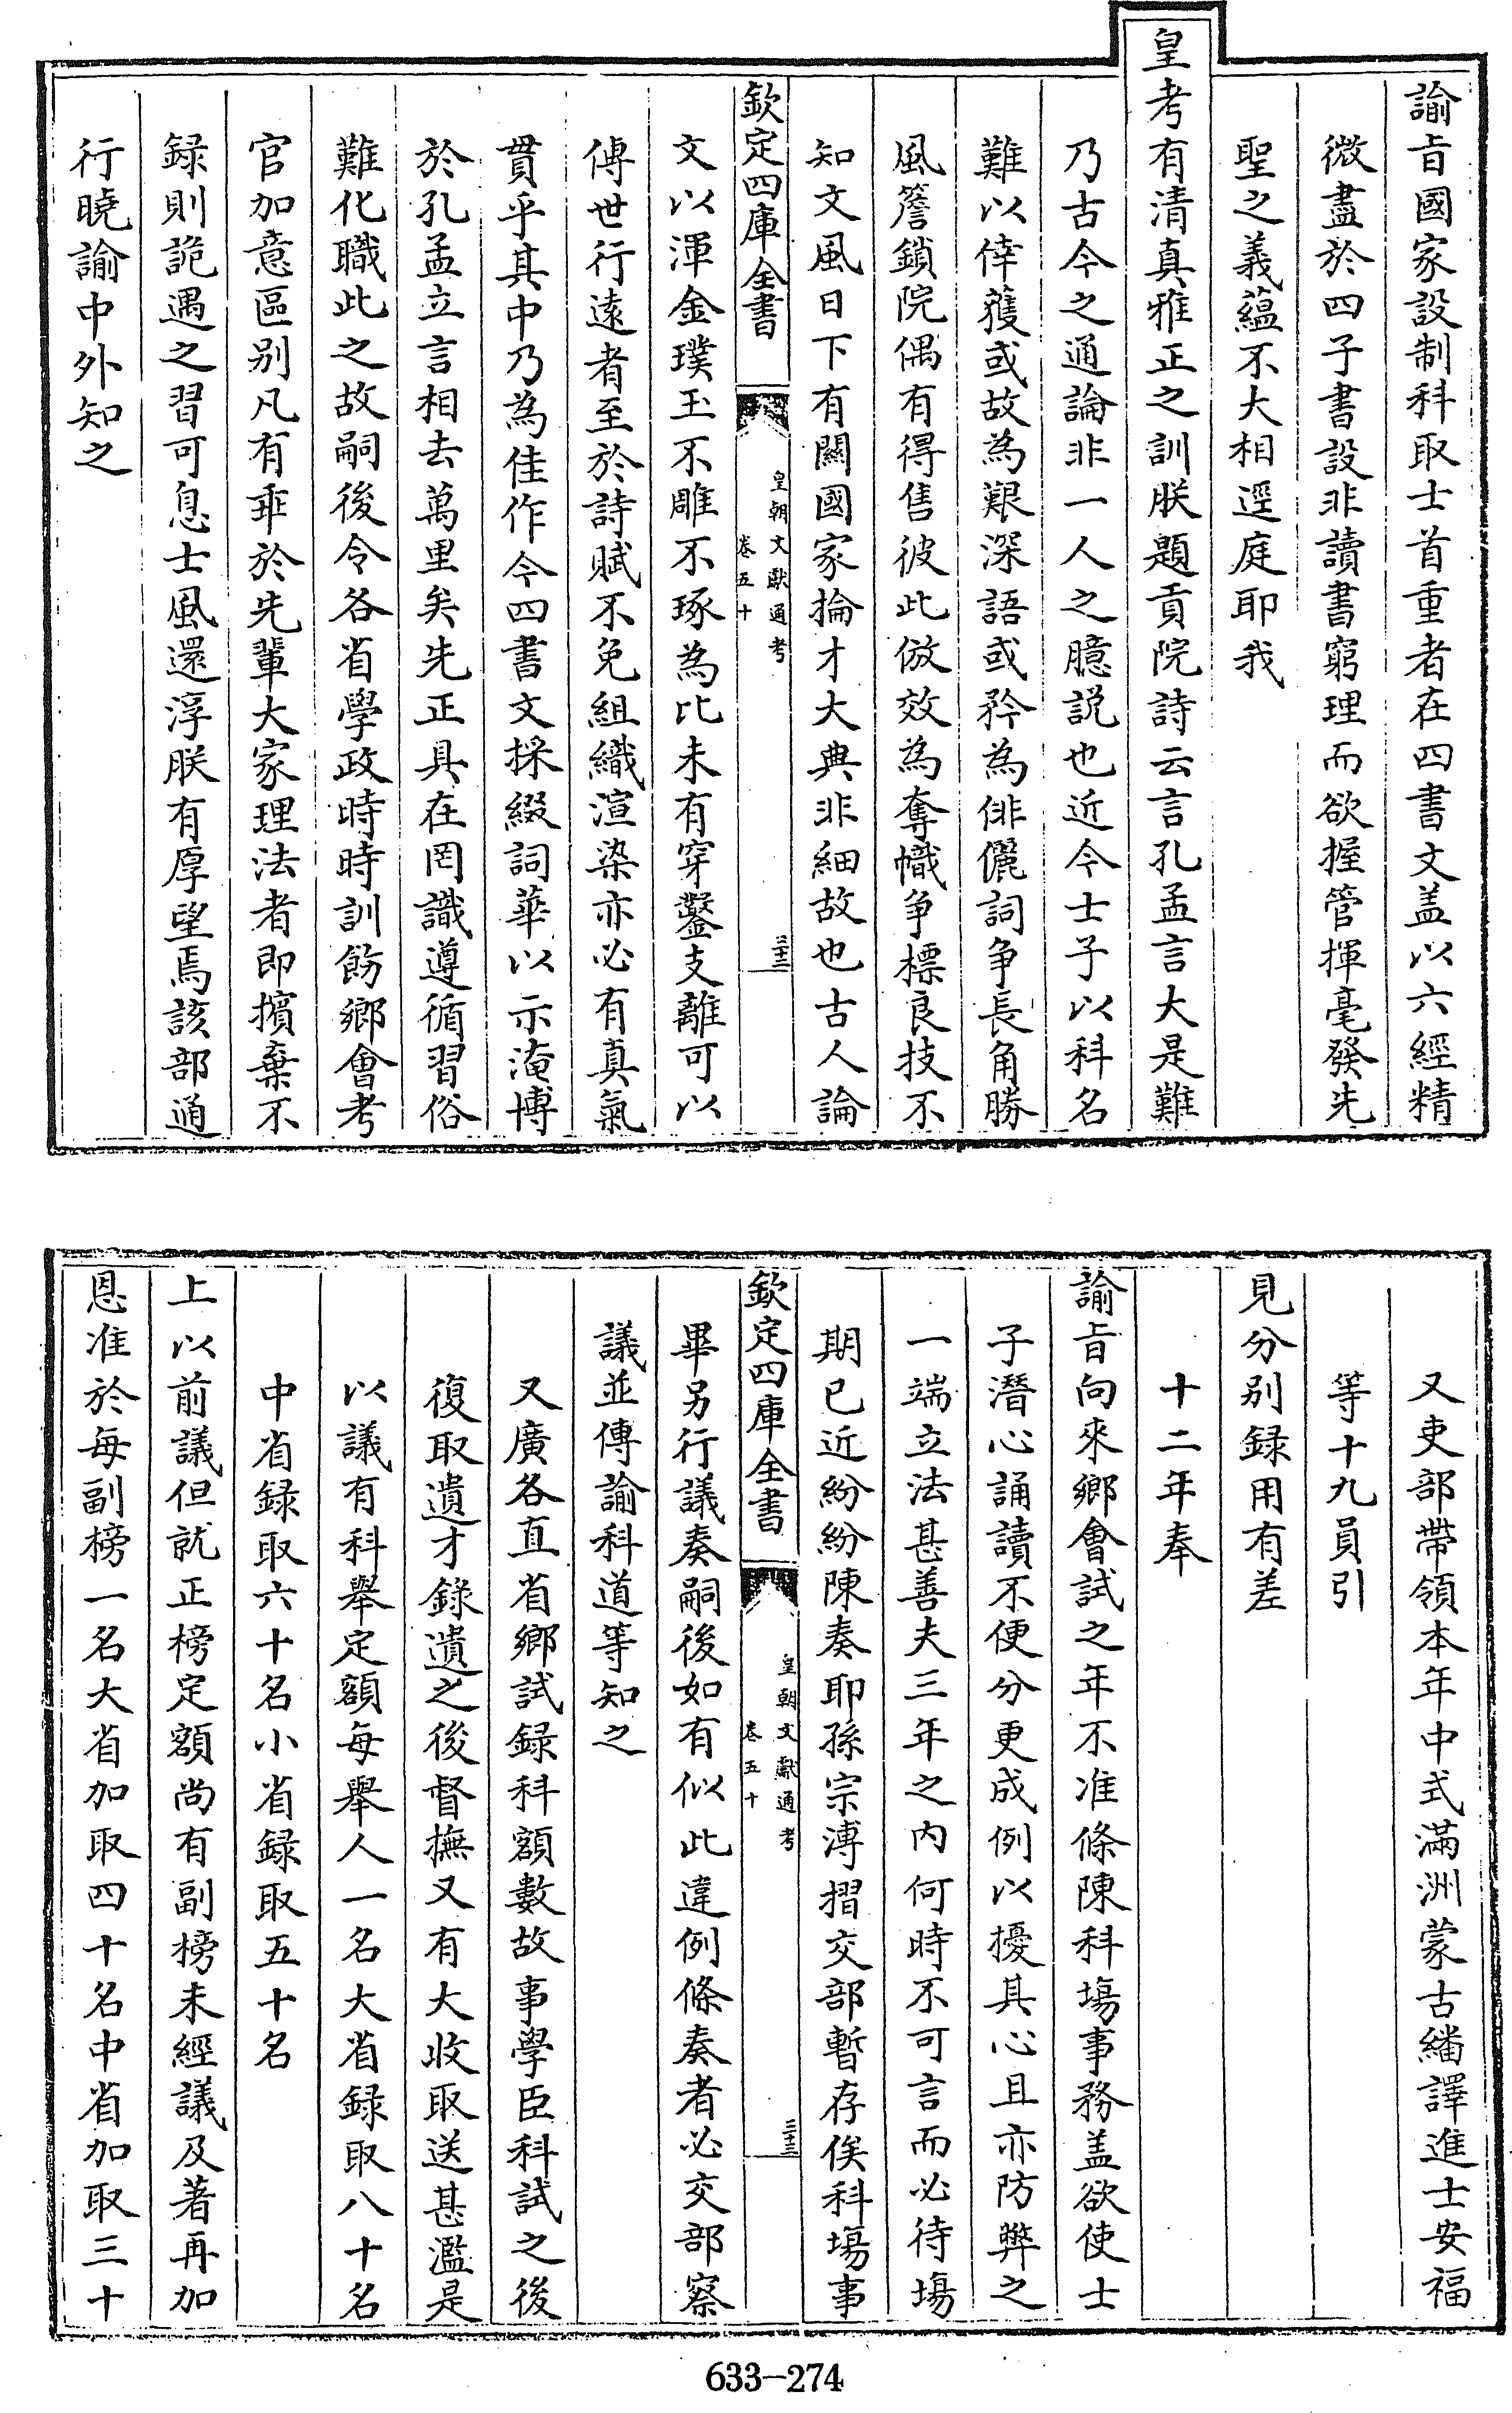 諭旨國家設制科取士首重者在四書文盖以六經精
微盡於四子書設非讀書窮理而欲握管揮毫發先
聖之義蘊不大相逕庭耶我
皇考有清真雅正之訓朕題貢院詩云言孔孟言大是難
乃古今之通論非一人之臆説也近今士子以科名
難以倖獲或故為艱深語或矜為俳儷詞争長角勝
風簷鎖院偶有得售彼此倣效為奪幟争標良技不
知文風日下有關國家掄才大典非細故也古人論
欽定四庫全書
皇朝文獻通考
卷五十
三十三
文以渾金璞玉不雕不琢為比未有穿鑿支離可以
傳世行遠者至於詩賦不免組織渲染亦必有真氣
貫乎其中乃為佳作今四書文採綴詞華以示淹博
於孔孟立言相去萬里矣先正具在罔識遵循習俗
難化職此之故嗣後令各省學政時時訓飭鄉會考
官加意區别凡有乖於先輩大家理法者即擯棄不
録則詭遇之習可息士風還淳朕有厚望焉該部通
行曉諭中外知之
又吏部帶領本年中式滿洲蒙古繙譯進士安福
等十九員引
見分别録用有差
十二年奉
諭旨向來鄉會試之年不准條陳科場事務盖欲使士
子潛心誦讀不便分更成例以擾其心且亦防弊之
一端立法甚善夫三年之内何時不可言而必待場
期已近紛紛陳奏耶孫宗溥摺交部暫存俟科場事
欽定四庫全書
皇朝文獻通考
卷五十
三十三
畢另行議奏嗣後如有似此違例條奏者必交部察
議並傳諭科道等知之
又廣各直省鄉試録科額數故事學臣科試之後
復取遺才錄遺之後督撫又有大收取送甚濫是
以議有科舉定額每舉人一名大省録取八十名
中省録取六十名小省録取五十名
上以前議但就正榜定額尚有副榜未經議及著再加
恩准於每副榜一名大省加取四十名中省加取三十
633-274